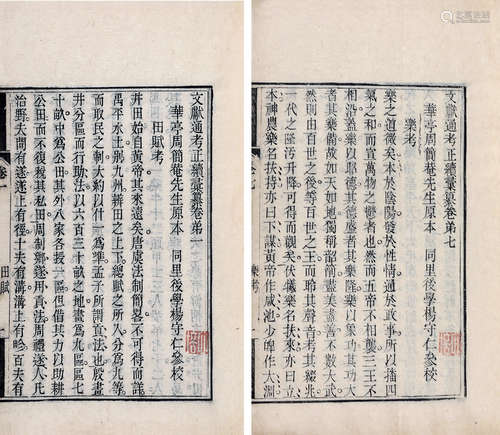 文獻通考正續彙纂卷第七
華亭周簡菴先生原本　同里後學楊守仁參校
樂考
樂之道微矣本於陰陽發於性情通於政事所以播四
氣之和而宣萬物之鬱者也然而五帝不相襲三王不
相沿蓋樂以昭德其德盛者其樂隆樂以象功其功大
者其樂備故如天如地韶箾盡美盡善而不數大武
然則由百世之後等百世之王而聆其聲音考其綴兆
一代之隆污升降可得而觀矣伏羲樂名扶來亦曰立
本神農樂名扶持亦曰下謀黃帝作咸池少皥作大淵
樂考
文獻通考正續彙纂卷第一
華亭周簡菴先生原本　同里後學楊守仁參校
田賦考
井田始自黃帝其來遠矣唐虞法制簡畧不可得而詳
禹平水土別九州辨田之上下總賦之所入分為九等
而取民之制大約以什一為準孟子所謂貢法也殷畫
井分區而行助法以六百三十畝之地畫為九區區七
十畝中為公田其外八家各授一區但借其力以助耕
公田而不復稅其私田周制鄉遂用貢法周禮遂人凡
治野夫間有遂遂上有徑十夫有溝溝上有畛百夫有
卷一
田賦